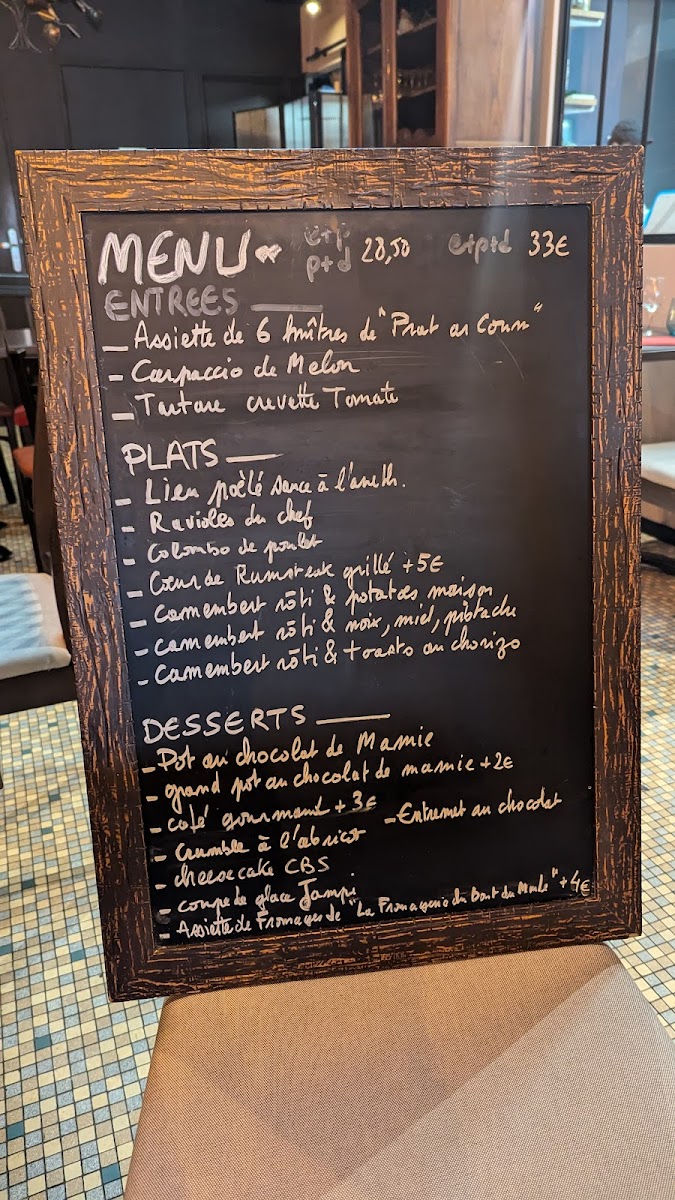 MENU e+p p+d 28,50 e+p+d 33€
ENTREES
- Assiette de 6 huîtres de "Prat ar Coum"
- Carpaccio de Melon
- Tartare crevette Tomate
PLATS
- Lieu poêlé sauce à l'aneth.
- Ravioles du chef
- Colombo de poulet
- Coeur de Rumsteak grillé +5€
- Camembert rôti & potatoes maison
- camembert rôti & noix, miel, pistache
- Camembert rôti & toasts au chorizo
DESSERTS
- Pot au chocolat de Mamie
- grand pot au chocolat de mamie +2€
- café gourmand +3€
- Entremet au chocolat
- Crumble à l'abricot
- cheesecake CBS
- coupe de glace Jampi
- Assiette de Fromages de "La Fromagerie du Bout du Monde" +4€